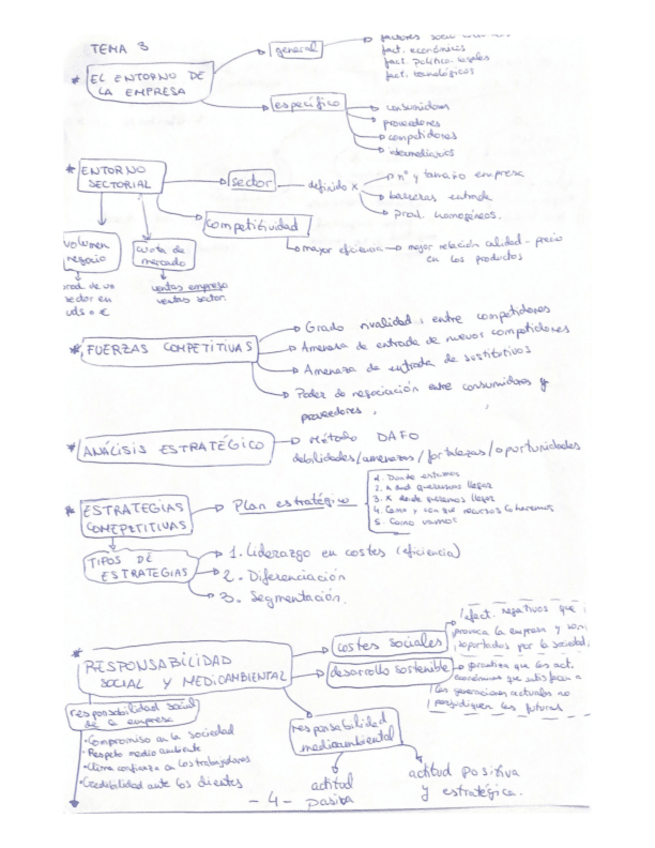 TEMA 3
general
factores socio
fact. económicos
fact. político-legales
fact. tecnológicos
* EL ENTORNO DE
LA EMPRESA
específico
consumidores
proveedores
competidores
intermediarios
* ENTORNO
SECTORIAL
sector
definido x
nº y tamaño empresa
barreras entrada
prod. homogéneos.
Competitividad
mayor eficiencia → mejor relación calidad-precio
en los productos
volumen
negocio
cuota de
mercado
prod. de un
sector en
uds o €
ventas empresa
ventas sector.
* FUERZAS COMPETITIVAS
Grado rivalidad entre competidores
Amenaza de entrada de nuevos competidores
Amenaza de entrada de sustitutivos
Poder de negociación entre consumidores y
proveedores.
* ANÁLISIS ESTRATÉGICO
Método DAFO
debilidades/amenazas/fortalezas/oportunidades
* ESTRATEGIAS
COMPETITIVAS
Plan estratégico
1. Donde estamos
2. A qué queremos llegar
3. X donde queremos llegar
4. Como y con que recursos
5. Como vamos
TIPOS DE
ESTRATEGIAS
1. Liderazgo en costes (eficiencia)
2. Diferenciación
3. Segmentación.
* RESPONSABILIDAD
SOCIAL Y MEDIOAMBIENTAL
costes sociales
efect. negativos que
provoca la empresa y son
soportados por la sociedad
desarrollo sostenible
practica que las act.
económicas que satisfacen a
las generaciones actuales no
perjudiquen las futuras
responsabilidad social
de la empresa
• Compromiso con la sociedad
• Respeto medio ambiente
• Clima confianza con los trabajadores
• Credibilidad ante los clientes
responsabilidad
medioambiental
actitud
pasiva
actitud positiva
y estratégica.
- 4 -